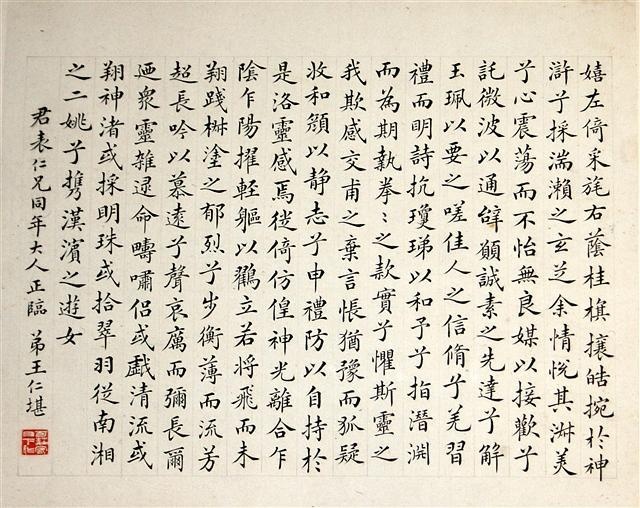 嬉左倚采旄右蔭桂旗攘皓捥於神
滸兮採湍瀨之玄芝余情悅其淑美
兮心震蕩而不怡無良媒以接歡兮
託微波以通辭願誠素之先達兮解
玉珮以要之嗟佳人之信脩兮羌習
禮而明詩抗瓊珶以和予兮指潛渊
而為期執拳〻之款實兮懼斯靈之
我欺感交甫之棄言悵猶豫而狐疑
收和顏以静志兮申禮防以自持於
是洛靈感焉徙倚仿偟神光離合乍
陰乍陽擢軽軀以鶴立若将飛而未
翔踐椒塗之郁烈兮步衡薄而流芳
超長吟以慕遠兮聲哀厲而彌長爾
迺衆靈雜遝命疇嘯侣或戯清流或
翔神渚或採明珠或拾翠羽従南湘
之二姚兮攜漢濱之遊女
君表仁兄同年大人正臨 弟王仁堪